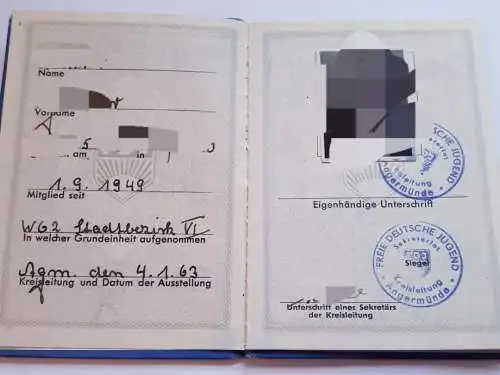 Name
Vorname
am in
1. 9. 1949
Mitglied seit
WG2 Stadtbezirk VI
In welcher Grundeinheit aufgenommen
Agm. den 4.1.63
Kreisleitung und Datum der Ausstellung
SCHE JUGEND
Sekretariat
Kreisleitung
Angermünde
Eigenhändige Unterschrift
FREIE DEUTSCHE JUGEND
Sekretariat
Siegel
Kreisleitung
Angermünde
Unterschrift eines Sekretärs
der Kreisleitung